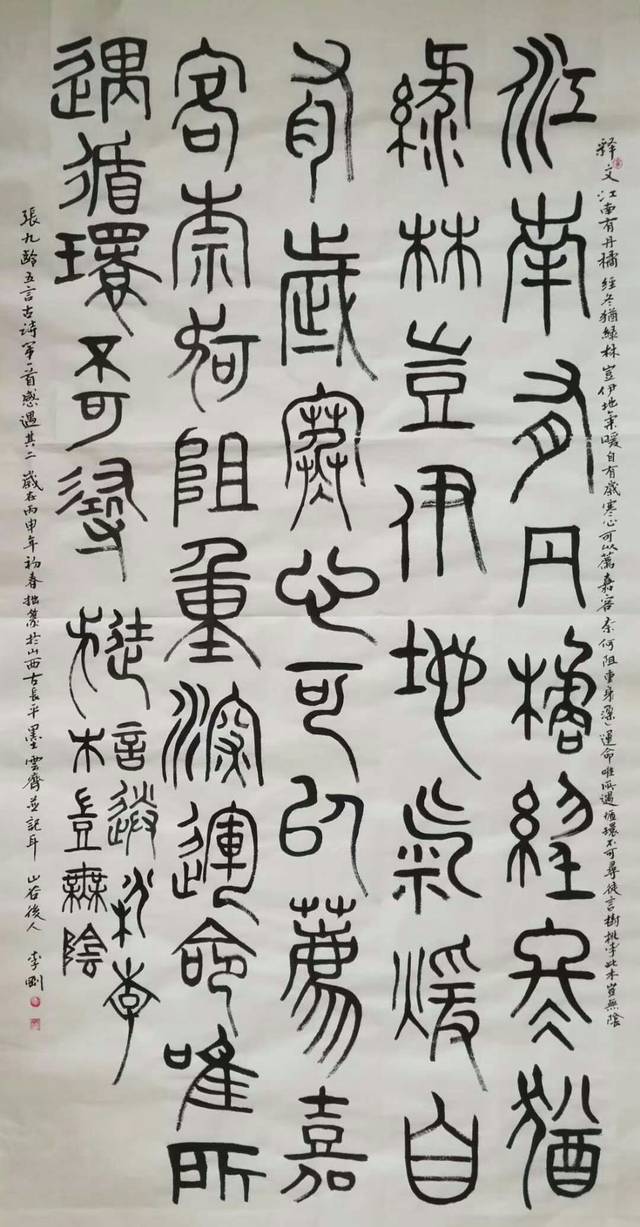 释文 江南有丹橘 經冬猶綠林 豈伊地氣暖 自有歲寒心 可以薦嘉容 奈何阻重深 運命唯所遇 循環不可尋 徒言樹桃李 此木豈無陰
江南有丹橘經冬猶
綠林豈伊地氣暖自
有歲寒心可以薦嘉
客奈何阻重深運命唯所
遇循環不可尋
徒言樹桃李
此木豈無陰
張九齡五言古诗第一首感遇其二 歲在丙申年初春拙篆於山西古長平墨雲齋並記耳 山谷後人 李剛